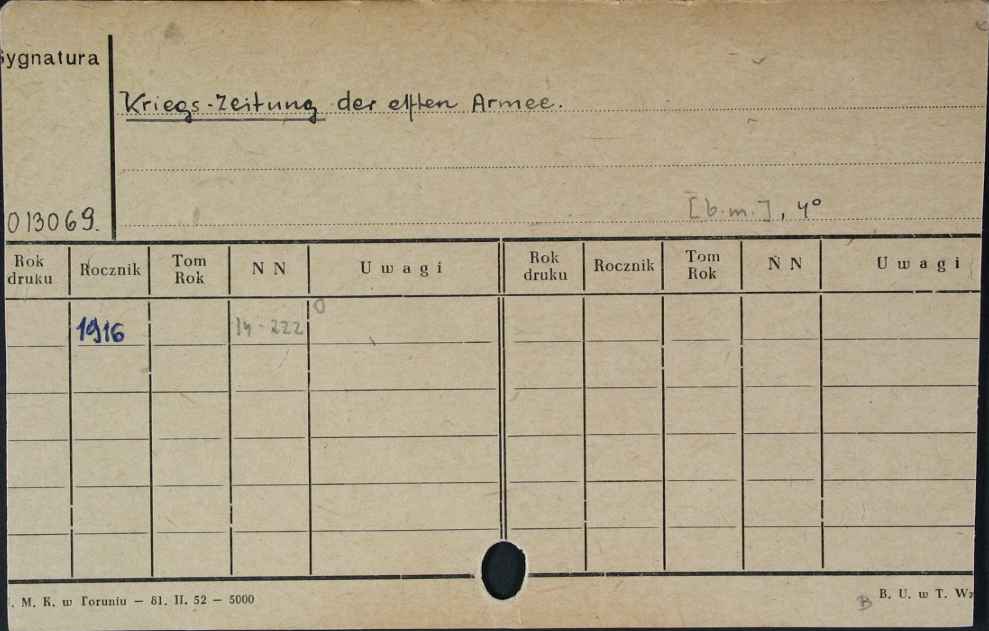 Sygnatura
Kriegs-Zeitung der elften Armee.
013069.
[b.m.], 4°
Rok druku Rocznik Tom Rok N N Uwagi Rok druku Rocznik Tom Rok N N Uwagi
1916 14-222 0
. M. K. w Toruniu — 81. II. 52 — 5000
B B. U. w T. Wz